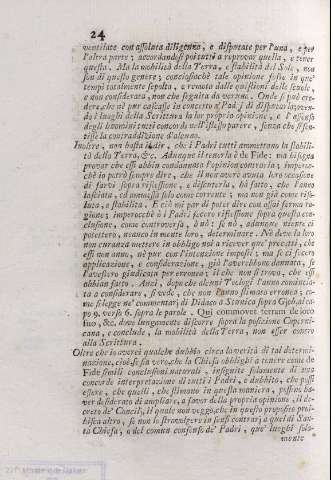 24
ventilate con assoluta diligenza, e disputate per l'una, e per
l'altra parte; accordandosi poi tutti a reprovar quella, e tener
questa. Ma la mobilità della Terra, e stabilità del Sole, non
son di questo genere; conciosiachè tale opinione fosse in que'
tempi totalmente sepolta, e remota dalle quistioni delle scuole,
e non considerata, non che seguita da veruno. Onde si può cre-
dere, che nè pur cascasse in concetto a' Padri di disputar la, aven-
do i luoghi della Scrittura la lor propria opinione, e l'assenso
degli huomini tutti concordi nell'istesso parere, senza che si sen-
tisse la contraddizione d'alcuno.
Inoltre, non basta il dir, che i Padri tutti ammettono la stabili-
tà della Terra, &c. Adunque il tenerla è de Fide: ma bisogna
provar che essi abbian condannato l'opinion contraria; impero-
chè io potrò sempre dire, che il non avere avuta loro occasione
di farvi sopra riflessione, e discuterla, ha fatto, che l'anno
lasciata, ed ammessa solo come corrente; ma non già come riso-
luta, e stabilita. E ciò mi par di poter dire con assai ferma ra-
gione; imperocchè ò i Padri fecero riflessione sopra questa con-
clusione, come controversa, ò nò: se nò, adunque niente ci
potettero, neanco in mente loro, determinare. Nè deve la loro
non curanza mettere in obbligo noi a ricever que' precetti, che
essi non anno, nè pur con l'intenzione imposti; ma se ci fecero
applicazione, e considerazione, già l'averebbono dannata, se
l'avessero giudicata per erronea; il che non si trova, che essi
abbian fatto. Anzi, dopo che alcuni Teologi l'anno comincia-
ta a considerare, si vede, che non l'anno stimata erronea; co-
me si legge ne' commentarj di Didaco a Stunica sopra Giob. al ca-
po 9. verso 6. sopra le parole. Qui commovet terram de loco
suo, &c. dove lungamente discorre sopra la posizione Coperni-
cana, e conclude, la mobilità della Terra, non esser contro
alla Scrittura.
Oltre che io averei qualche dubbio circa la verità di tal determi-
nazione, cioè se sia vero, che la Chiesa obblighi a tenere come de
Fide simili conclusioni naturali, insignite solamente di una
concorde interpretazion di tutti i Padri, e dubbito, che possi
essere, che quelli, che stimono in questa maniera, possino ha-
ver desiderato di ampliare, a favor della propria opinione, il de-
creto de' Concilj, il quale non veggo, che in questo proposito proi-
bisca altro, se non lo stravolgere in sensi contrarj a quel di San-
ta Chiesa, o del comun consenso de' Padri, que' luoghi sola-
mente